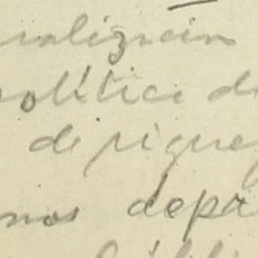 ralización
política de
de rique
nos depa